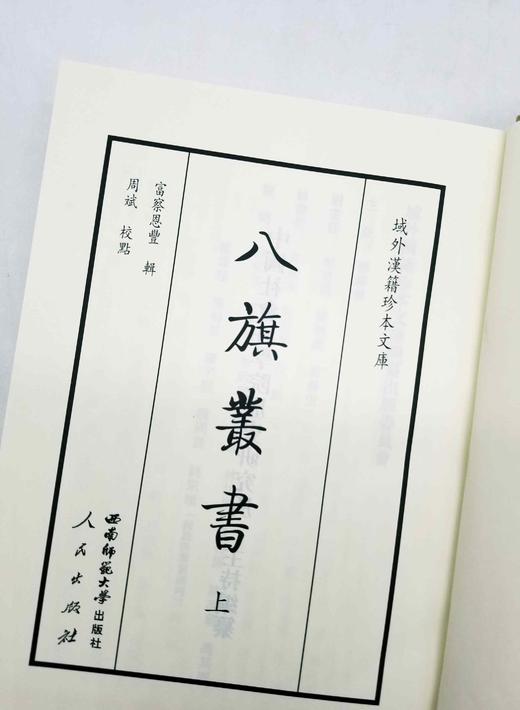 域外漢籍珍本文庫
八旗叢書 上
富察恩豐 輯
周斌 校點
西南師範大學出版社
人民出版社